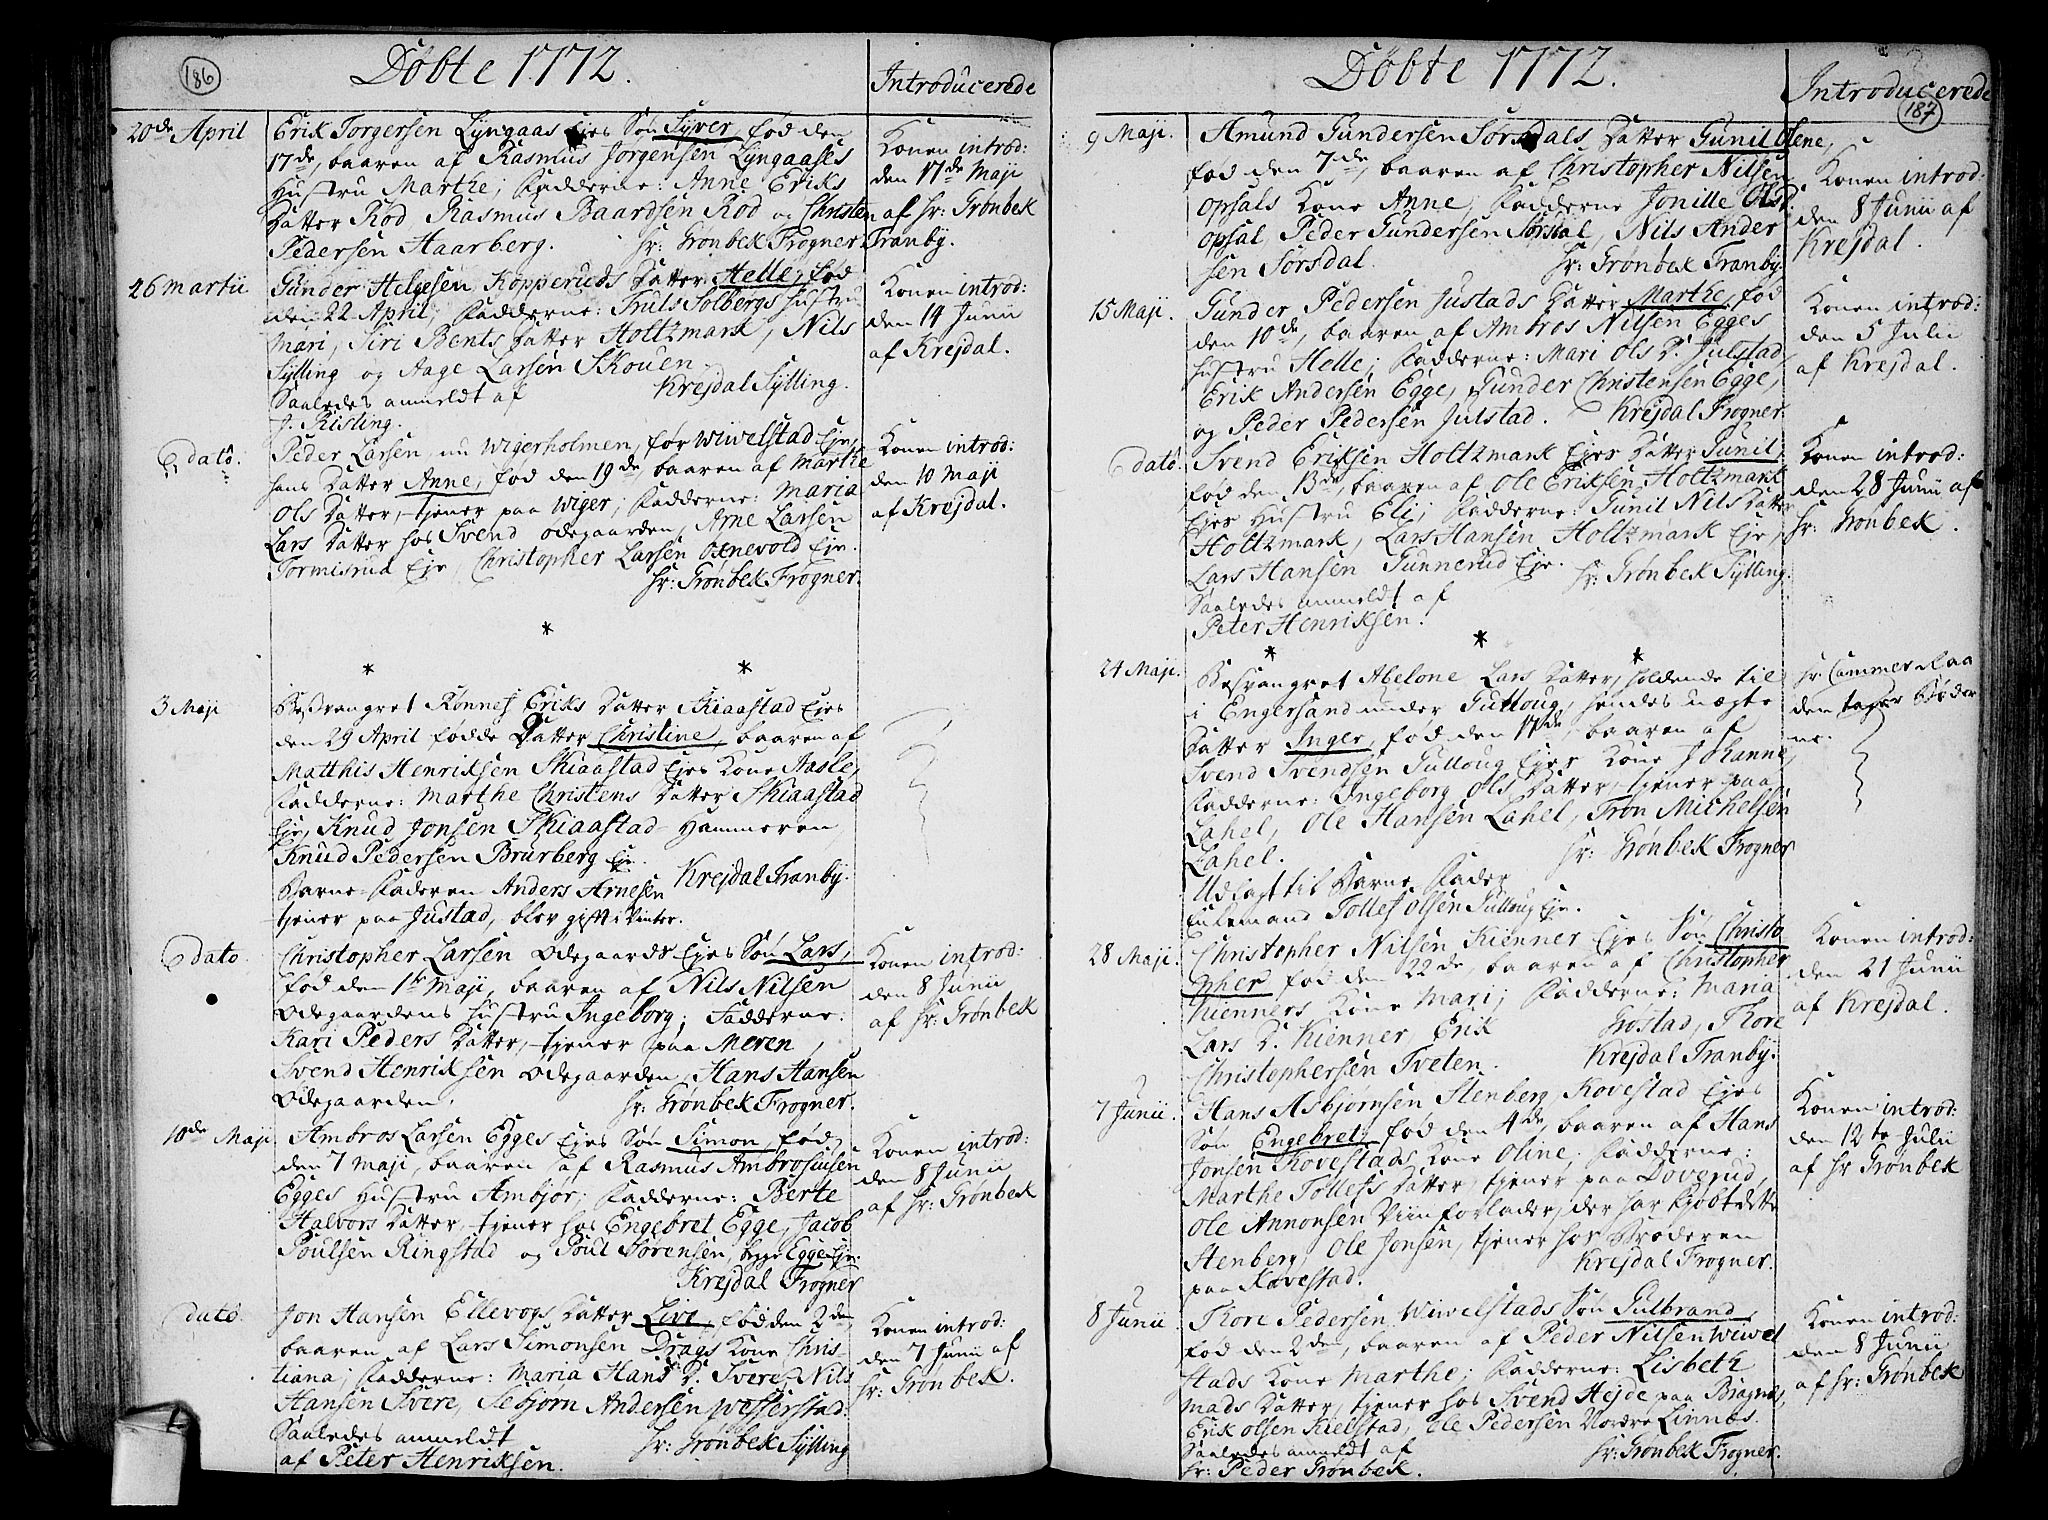 186
Döbte 1772.
Introducerede
20de April
Erik Torgersen Lÿngaas Ejes Søn Syver fød den
17de, baaren af Rasmus Jorgensen Lyngaases
Hustru Marthe; Fadderne: Anne Eriks
Datter Rød Rasmus Baardsen Rød og Christen
Pedersen Haarberg. Hr: Grønbek Frogner
Konen introd:
den 17de Maji
af Hr: Grønbek
Tranby.
26 Martii
Gunder Helgesen Kopperuds Datter Helle, fød
den 22 April, Fadderne: Truls Solbergs Hustru
Mari, Siri Bents Datter Holtzmark, Nils
Sylling og Aage Larsen Skouen
Saaledes anmeldt af Krejdal Sylling.
J. Risling.
Konen introd:
den 14 Junii
af Krejdal.
E dato.
Peder Larsen, nu Wigerholmen, før Wiwelstad Eje,
hans Datter Anne, fød den 19de, baaren af Marthe
Ols Datter, tjener paa Wiger; Fadderne: Maria
Lars Datter hos Svend Odegaarden, Arne Larsen
Tormisrud Eje, Christopher Larsen Oxnevold Eje.
Hr: Grønbek Frogner.
Konen introd:
den 10 Maji
af Krejdal.
*
* *
3 Maji
Besvangret Rønnes Eriks Datter Skiaastad Ejes
den 29 April fødde Datter Christine, baaren af
Matthis Henriksen Skiaastad Ejes Kone Aasle,
Fadderne: Marthe Christens Datter Skiaastad
Eje, Knud Jonsen Skiaastad-Hammeren,
Knud Pedersen Brurberg Eje.
Barne-Faderen Anders Arnesen Krejdal Tranby.
tjener paa Justad, blev gift i Vinter.
E dato
Christopher Larsen Odegaards Ejes Søn Lars,
fød den 1te Maji, baaren af Nils Nilsen
Odegaardens Hustru Ingeborg; Fadderne:
Kari Peders Datter, tjener paa Meren,
Svend Henriksen Odegaarden, Hans Hansen
Odegaarden. Hr: Grønbek Frogner.
Konen introd:
den 8 Junii
af Hr: Grønbek
10de Maji
Ambros Larsen Egges Ejes Søn Simon, fød
den 7 Maji, baaren af Rasmus Ambrosiusen
Egges Hustru Ambjør; Fadderne: Berte
Halvors Datter, tjener hos Engebret Egge, Jacob
Poulsen Ringstad og Poul Sørensen, bygge Egge Eje.
Krejdal Frogner
Konen introd:
den 8 Junii
af Hr: Grønbek
E dato.
Jon Hansen Ellevogs Datter Live, fød den 2den
baaren af Lars Simonsen Drags Kone Chris-
tiana; Fadderne: Maria Hans D. Svere, Nils
Hansen Svere, Sebjorn Andersen Wefferstad.
Saaledes anmeldt Hr: Grønbek Sylling
af Peter Henriksen.
Konen introd:
den 7 Junii af
Hr: Grønbek.
Döbte 1772.
Introducerede
187
9 Maji.
Amund Gundersen Sørsdals Datter Gunil Olene,
fød den 7de, baaren af Christopher Nilsen
Opsals Kone Anne; Fadderne Jonille Ols D.
Opsal, Peder Gundersen Sørsdal, Nils Ander
sen Sørsdal. Hr: Grønbek Tranby.
Konen introd:
den 8 Junii af
Krejdal.
15 Maji.
Gunder Pedersen Justads Datter Marthe, fød
den 10de, baaren af Ambros Nilsen Egges
Hustru Helle; Fadderne: Mari Ols D. Julstad,
Erik Andersen Egge, Gunder Christensen Egge,
og Peder Pedersen Julstad. Krejdal Frogner
Konen introd:
den 5 Julii
af Krejdal.
E dato.
Svend Eriksen Holtzmark Ejes Datter Gunil,
fød den 13de, baaren af Ole Eriksen Holtzmark
Ejes Hustru Eli; Fadderne: Gunil Nils Datter
Holtzmark, Lars Hansen Holtzmark Eje,
Lars Hansen Gunnerud Eje. Hr: Grønbek Sylling.
Saaledes anmeldt af
Peter Henriksen.
Konen introd:
den 28 Junii af
Hr: Grønbek.
*
* *
24 Maji.
Besvangret Abelone Lars Datter, holdende til
i Engersand under Gulloug, hendes uægte
Datter Inger, fød den 17de, baaren af
Svend Svendsen Gulloug Ejes Kone Johanne,
Fadderne: Ingeborg Ols Datter, tjener paa
Lahel, Ole Hansen Lahel, Tron Michelsen
Lahel. Hr: Grønbek Frogner
Udlagt til Barne Fader
Enkemand Tollef Olsen Gulloug Eje.
Hr: Cammer Raa
den tager Bøder
ne.
28 Maji.
Christopher Nilsen Kienner Ejes Søn Christo
pher fød den 22de, baaren af Christopher
Kienners Kone Mari; Fadderne: Maria
Lars D. Kienner, Erik Grostad, Thore
Christophersen Tveten. Krejdal Tranby.
Konen introd:
den 21 Junii
af Krejdal.
7 Junii
Hans Asbjørnsen Stenberg Kovestad Ejes
Søn Engebret, fød den 4de, baaren af Hans
Jonsen Kovestads Kone Oline; Fadderne:
Marthe Tollefs Datter, tjener paa Doverud,
Ole Annonsen Viinforlader, der har kjøbt dette
Stenberg, Ole Jonsen, tjener hos Broderen
paa Kovestad. Krejdal Frogner.
Konen introd:
den 12te Julii
af Hr Grønbek
8 Junii
Thore Pedersen Wiwelstads Søn Gulbrand,
fød den 2den, baaren af Peder Nilsen Wiwel
stads Kone Marthe; Fadderne: Lisbeth
Mads Datter, tjener hos Svend Hejde paa Bragnæs,
Erik Olsen Kielstad, Ole Pedersen Nordre Linnæs.
Saaledes anmeldt af Hr: Grønbek Frogner.
Hr: Peder Grønbek.
Konen introd:
den 8 Junii
af Hr: Grønbek